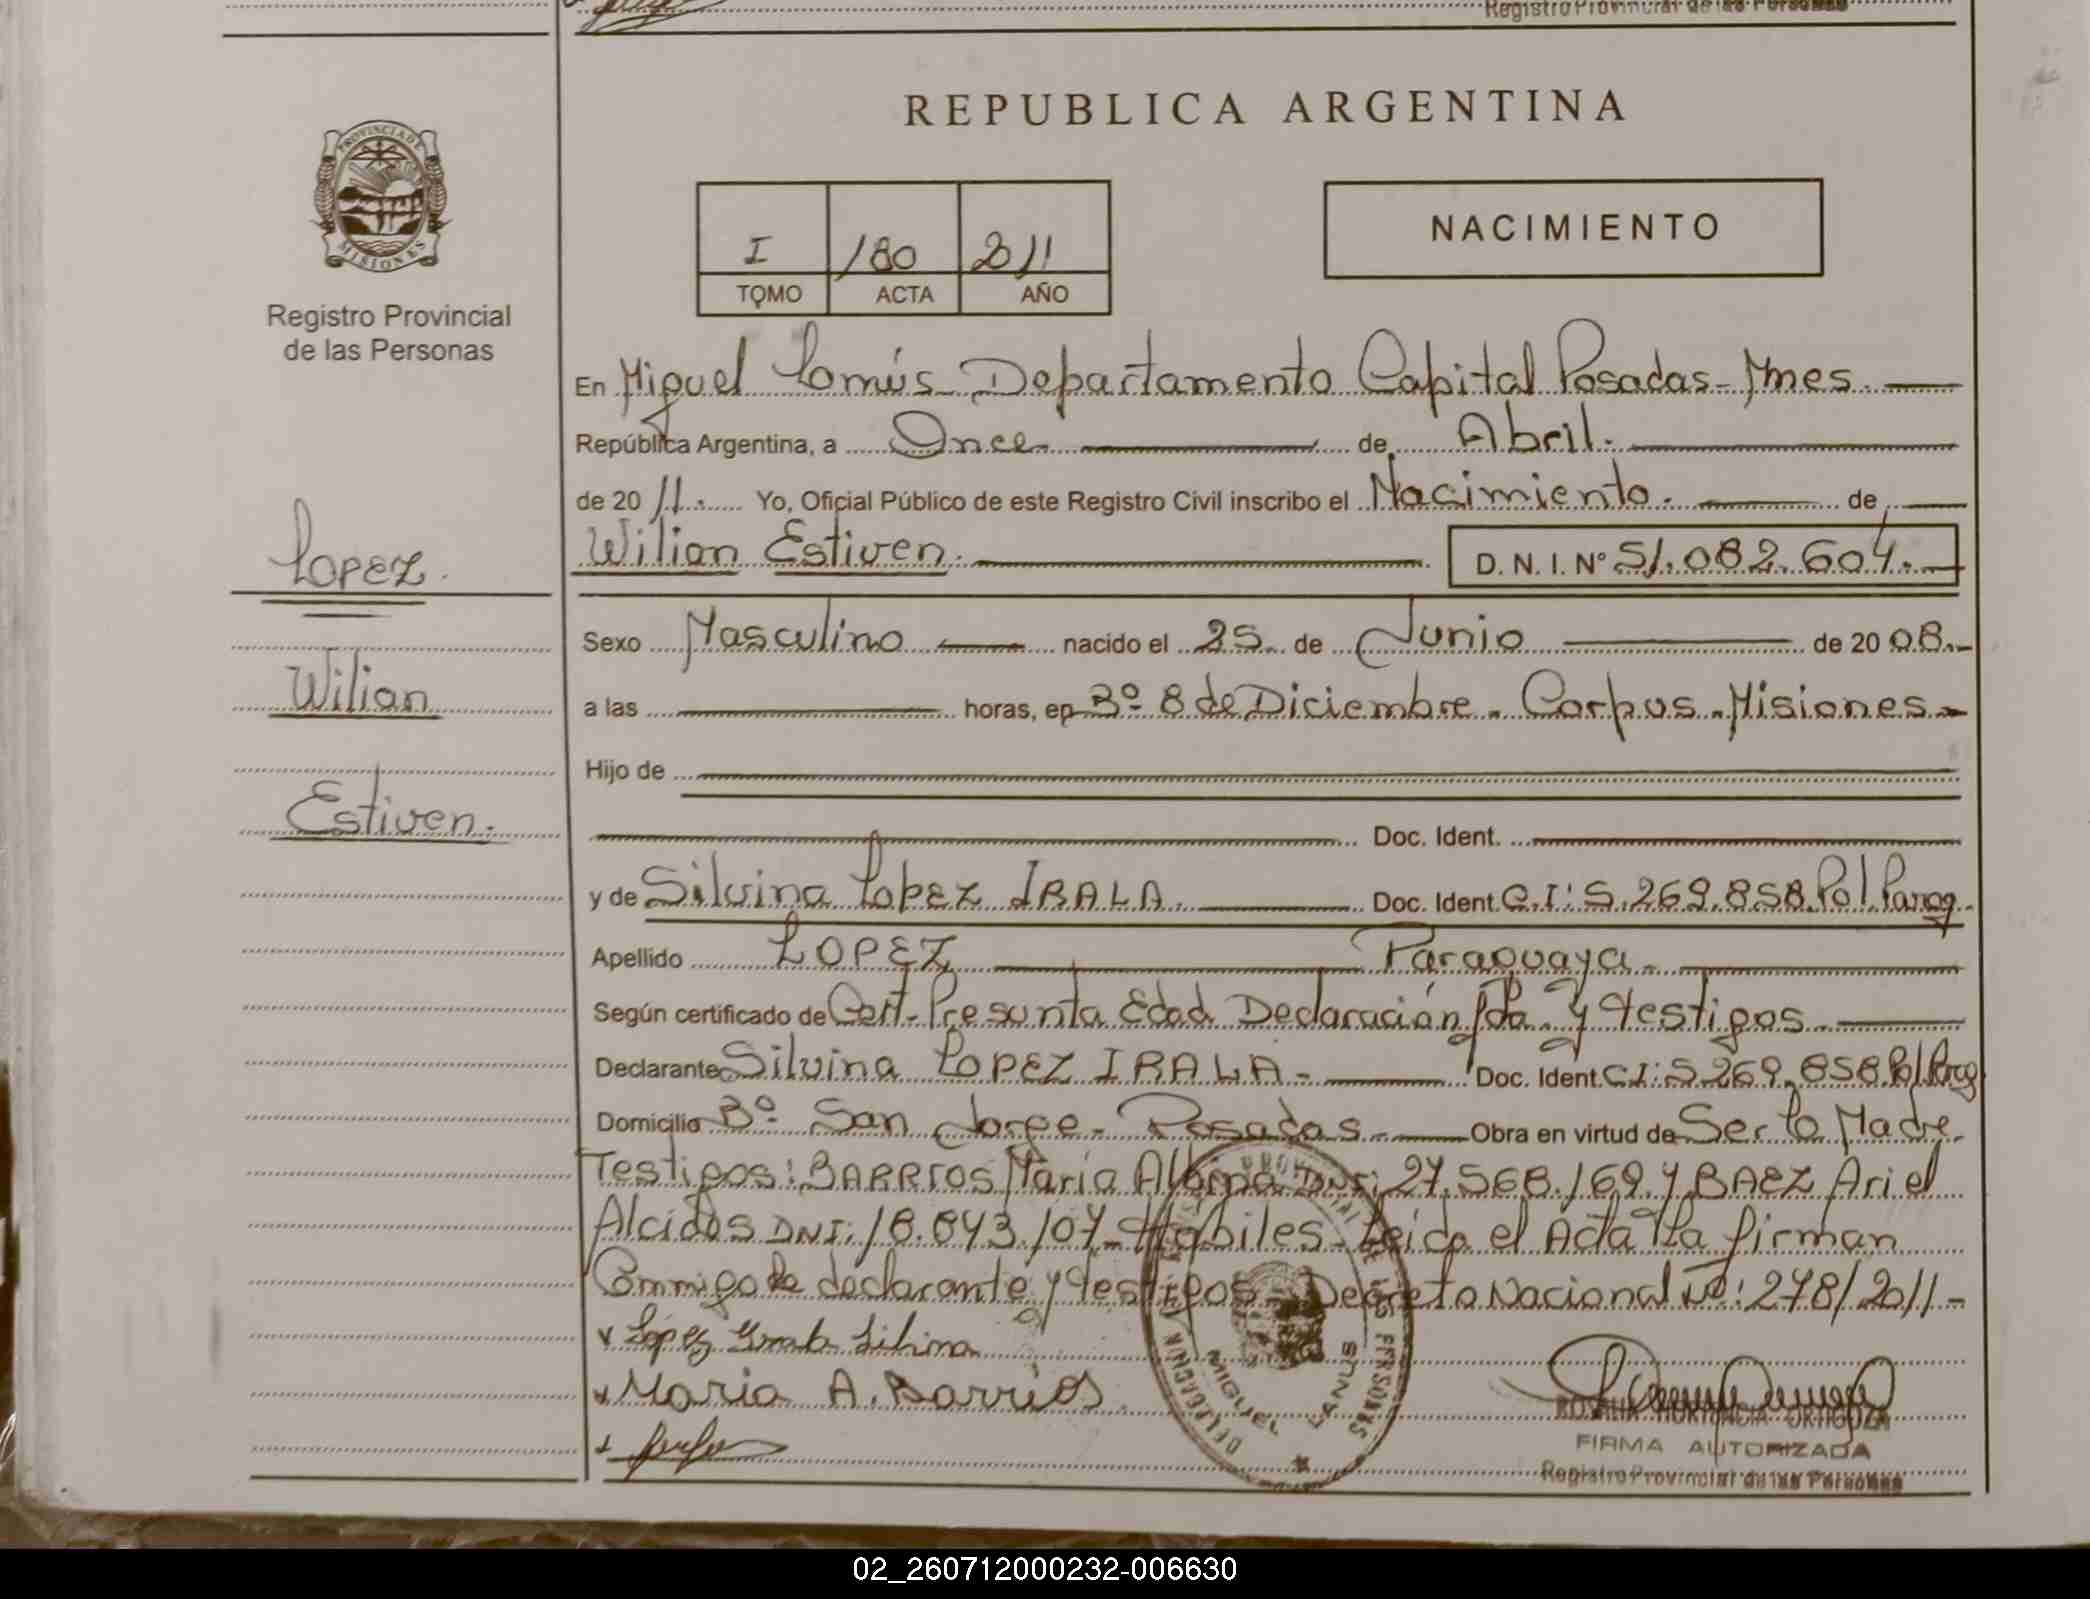 Registro Provincial de las Personas
REPUBLICA ARGENTINA
PROVINCIA DE
MISIONES
Registro Provincial
de las Personas
I 180 2011
TOMO ACTA AÑO
NACIMIENTO
En Miguel Lanús - Departamento Capital Posadas - Mnes.
República Argentina, a Once de Abril.
de 20 11. Yo, Oficial Público de este Registro Civil inscribo el Nacimiento. de
Wilian Estiven. D. N. I. N° 51.082.604.
LOPEZ.
Wilian
Estiven.
Sexo Masculino nacido el 25 de Junio de 20 08.-
a las horas, en Bº 8 de Diciembre - Corpus - Misiones -
Hijo de
Doc. Ident.
y de Silvina Lopez IRALA. Doc. Ident. C.I: 5.269.858 Pol. Parag.
Apellido LOPEZ Paraguaya.
Según certificado de Cert. Presunta Edad Declaración y testigos
Declarante Silvina LOPEZ IRALA - Doc. Ident. C.I: 5.269.858 Pol.
Domicilio Bº San Jorge - Posadas Obra en virtud de Ser la Madre.
Testigos: BARRIOS María DNI: 27.568.169 y BAEZ Ariel
Alcides DNI: 18.843.107 - Habiles - Leida el Acta la firman
Conmigo la declarante y testigos - Decreto Nacional Nº: 278/2011 -
x López Irala Silvina
x Maria A. Barrios
DELEGACION MIGUEL LANUS
REGISTRO PROVINCIAL DE LAS PERSONAS
ROSALIA HORTENCIA ORTIGOZA
FIRMA AUTORIZADA
Registro Provincial de las Personas
02_260712000232-006630